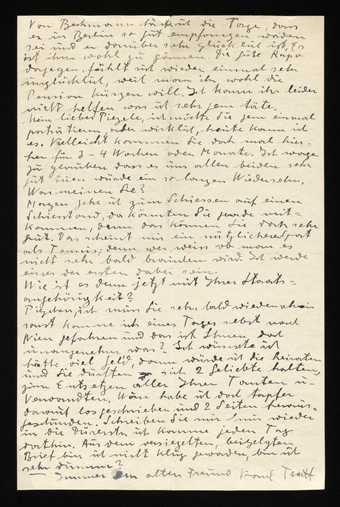 Von Beckmann hörte ich die Tage, dass
er in Berlin so gut empfangen worden
sei und er darüber sehr glücklich ist. Es
ist ihm wohl zu gönnen. Die gute
dagegen fühlt sich wieder einmal sehr
unglücklich, weil man ihr wohl die
Pension kürzen will. Ich kann ihr leider
nicht helfen was ich sehr gern täte.
Mein lieber ich möchte Sie gern einmal
porträtieren, aber wirklich, heute kann ich
es. Vielleicht kommen Sie doch mal hier-
her für 3-4 Wochen oder Monate. Ich wage
zu glauben, dass es uns allen beiden sehr
gut tun würde ein so langes Wiedersehn.
Was meinen Sie?
Morgen gehe ich zum Schiessen auf einen
Schiesstand, da könnten Sie gerade mit-
kommen, denn das können Sie doch sehr
gut. Das scheint mir ein nützlicherer Sport
als Tennis, denn wer weiss ob man es
nicht sehr bald brauchen wird. Ich werde
einer der ersten dabei sein.
Wie ist es denn jetzt mit Ihrer Staats-
angehörigkeit?
ich muss Sie sehr bald wiedersehen
sonst komme ich eines Tages selbst nach
Wien gefahren und das ist Ihnen doch
unangenehm, was? Ich wünschte ich
hätte viel Geld, dann würde ich Sie heiraten
und Sie dürften sich 2 Geliebte halten,
zum Entsetzen aller Ihrer Tanten u-
Verwandten. Nun habe ich doch tapfer
darauf losgeschrieben und 2 Seiten heraus-
geschunden. Schreiben Sie mir nur wieder
in die ich komme jeden Tag
dorthin. Aus dem versiegelten, beigelegten
Brief bin ich nicht klug geworden, bin ich
sehr dumm?
Immer Ihr alter Freund